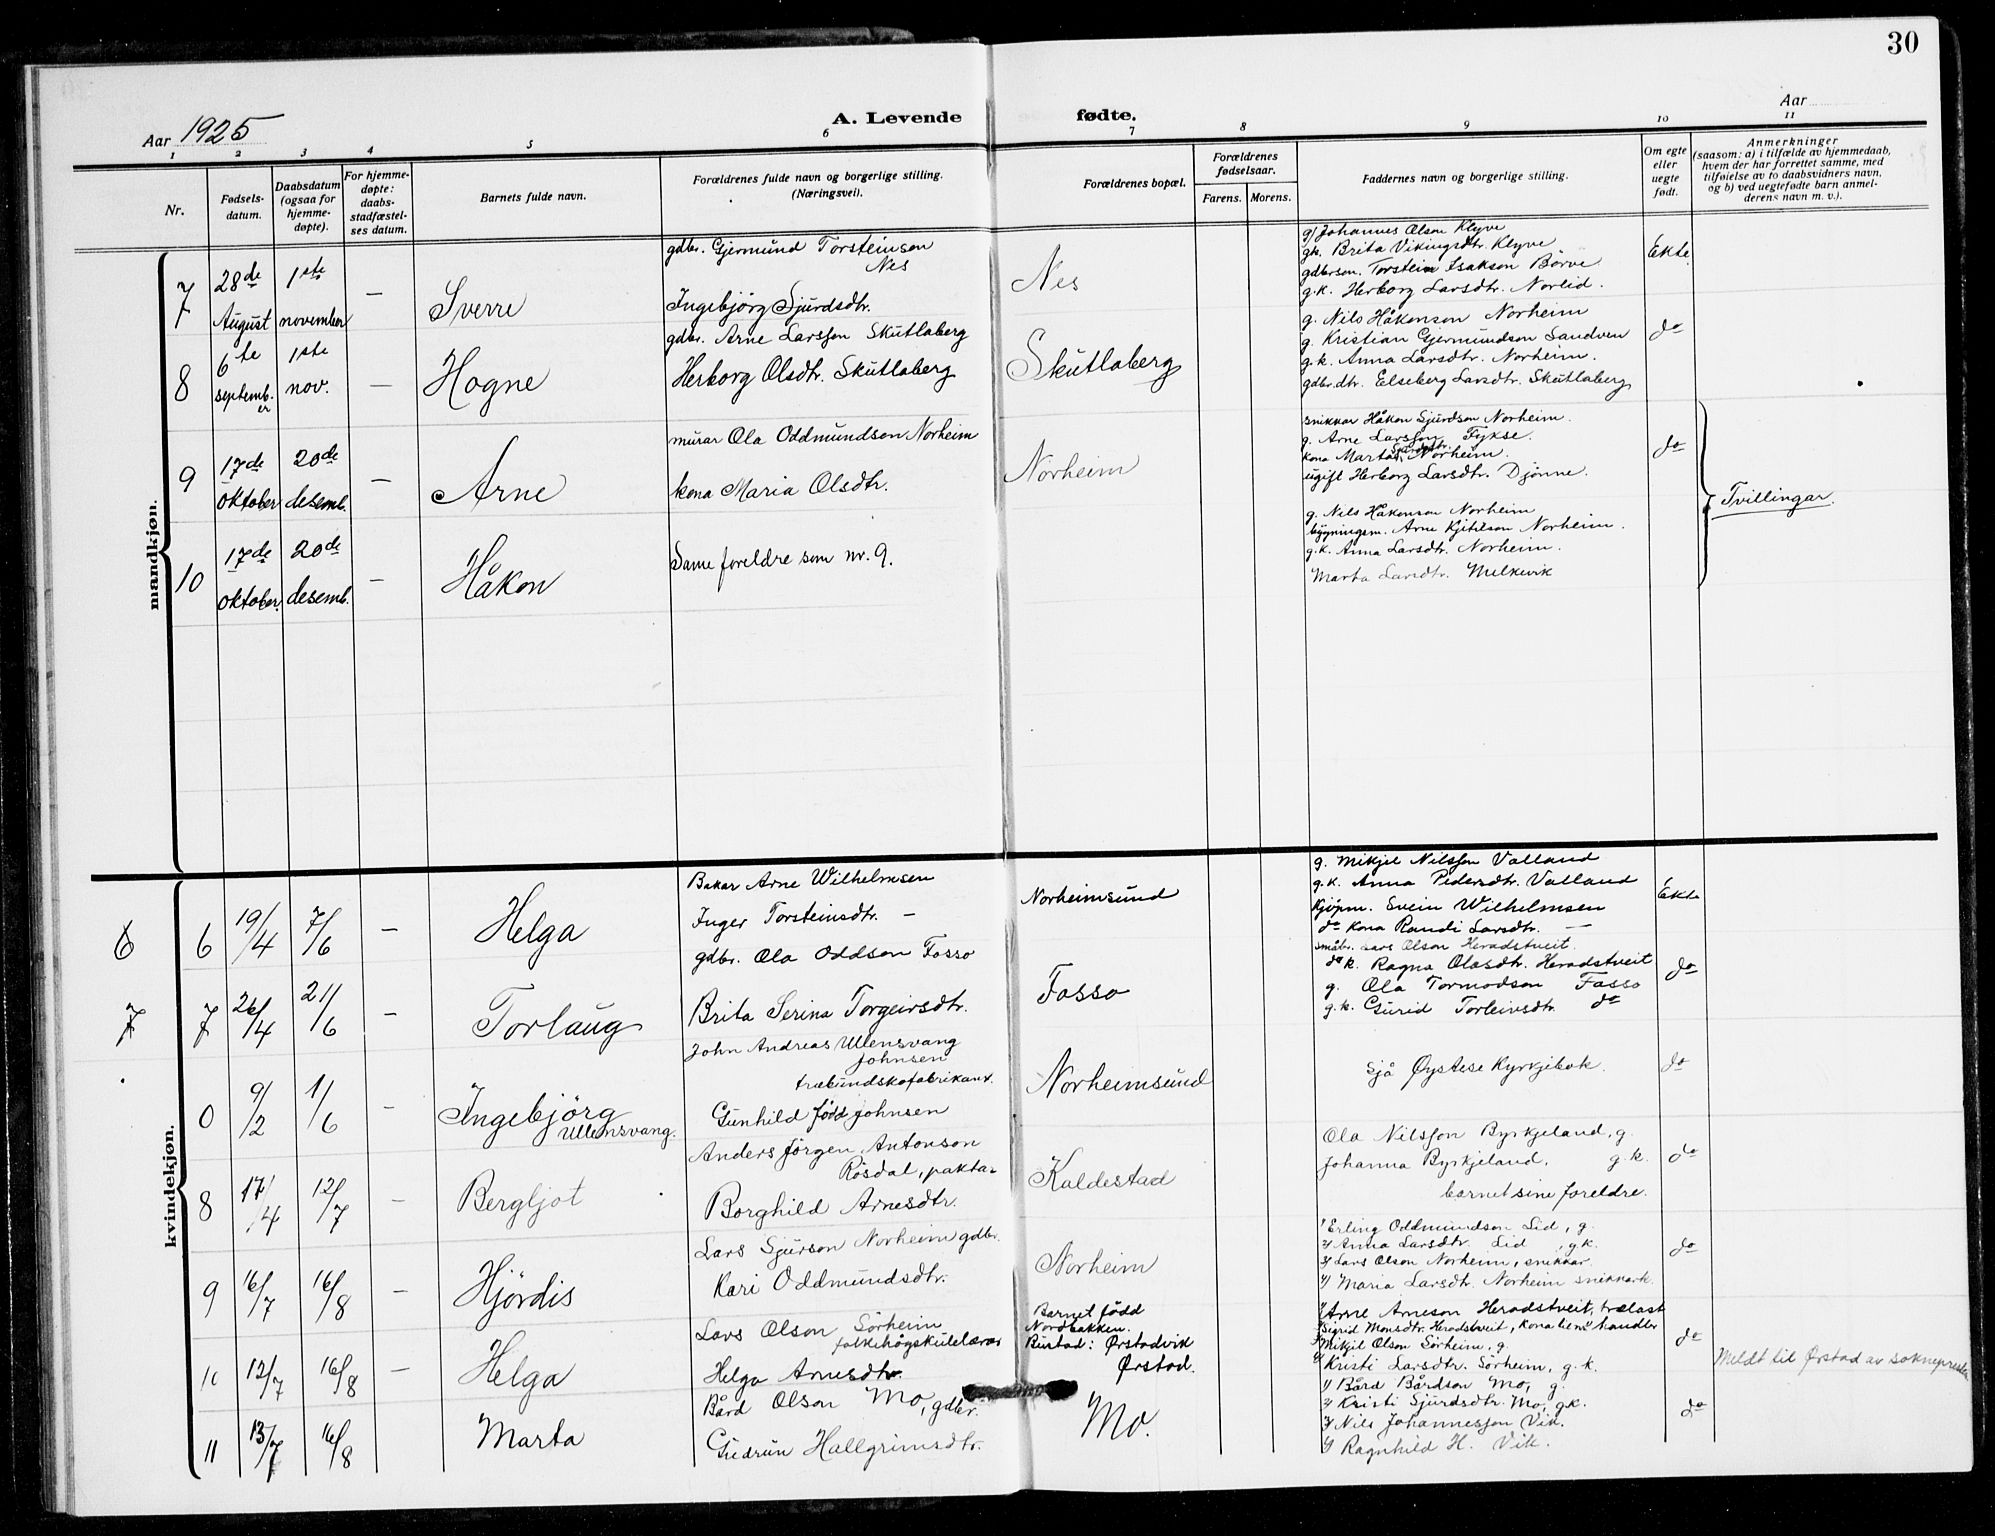 30
Aar 1925
A. Levende fødte.
Aar
1 2 3 4 5 6 7 8 9 10 11
Nr.
Fødsels-
datum.
Daabsdatum
(ogsaa for
hjemme-
døpte).
For hjemme-
døpte:
daabs-
stadfæstel-
ses datum.
Barnets fulde navn.
Forældrenes fulde navn og borgerlige stilling.
(Næringsvei).
Forældrenes bopæl.
Forældrenes
fødselsaar.
Farens. Morens.
Faddernes navn og borgerlige stilling.
Om egte
eller
uegte
født.
Anmerkninger
(saasom: a) i tilfælde av hjemmedaab,
hvem der har forrettet samme, med
tilføielse av to daabsvidners navn,
og b) ved uegtefødte barn anmel-
derens navn m. v.).
mandkjøn.
7
28de
August
1ste
november
—
Sverre
gdbr. Gjermund Torsteinson
Nes
Ingebjörg Sjurdsdtr.
Nes
g/ Johannes Olson Klyve
gk. Brita Vikingsdtr. Klyve
gdbrson. Torstein Isakson Börve
g.k. Herborg Larsdtr. Norlid.
Ekte
8
6te
septemb.
er
1ste
nov.
—
Hogne
gdbr. Arne Larsson Skutlaberg
Herborg Olsdtr. Skutlaberg
Skutlaberg
g. Nils Håkonson Norheim
g. Kristian Gjermundson Sandven
g.k. Anna Larsdtr. Norheim.
gdbr.dtr. Elseberg Larsdtr. Skutlaberg
do
9
17de
oktober
20de
desemb.
—
Arne
murar Ola Oddmundson Norheim
kona Maria Olsdtr.
Norheim
snikkar Håkon Sjurdson Norheim.
g. Arne Larsson Fykse.
kona Marta Norheim.
ugift Herborg Larsdtr. Djönne.
do
Tvillingar.
10
17de
oktober.
20de
desemb.
—
Håkon
Same foreldre som nr. 9.
g. Nils Håkonson Norheim
bygningsm. Arne Kjitilson Norheim.
g.k. Anna Larsdtr. Norheim.
Marta Larsdtr. Melkevik
kvindekjøn.
6
6
19/4
7/6
—
Helga
Bakar Arne Wilhelmsen
Inger Torsteinsdtr. —
Norheimsund
g. Mikjel Nilsson Valland
g.k. Anna Pedersdtr. Valland
Kjöpm. Svein Wilhelmsen
do kona Randi Larsdtr. —
Ekte
7
7
26/4
21/6
—
Torlaug
gdbr. Ola Oddson Fosso
Brita Serina Torgeirsdtr.
Fosso
småbr. Lars Olson Heradstveit.
do k. Ragna Olasdtr. Heradstveit
g. Ola Tormodson Fosso
g.k. Gurid Torleivsdtr. do
do
0
9/2
1/6
—
Ingebjörg
Ullensvang.
John Andreas Ullensvang
Johnsen
træbundskofabrikant.
Gunhild född Johnsen
Norheimsund
Sjå Øystese Kyrkjebok.
do
8
17/4
12/7
—
Bergljot
Anders Jörgen Antonson
Rösdal, paktar
Borghild Arnesdtr.
Kaldestad
Ola Nilsson Byrkjeland, g.
Johanna Byrkjeland, g.k.
barnet sine foreldre.
do
9
16/7
16/8
—
Hjördis
Lars Sjurson Norheim gdbr.
Kari Oddmundsdtr.
Norheim
1/ Erling Oddmundson Lid, g.
2/ Anna Larsdtr. Lid, g.k.
3/ Lars Olson Norheim, snikkar
4/ Maria Larsdtr. Norheim snikkark.
do
10
12/7
16/8
—
Helga
Lars Olson Sörheim
folkehögskulelærar
Helga Arnesdtr.
Barnet född
Nordbakken.
Bustad: Ørstadvik
Ørstad.
1/ Arne Arneson Heradstveit, trælast
2/ Sigrid Monsdtr. Heradstveit, kona hens handler
3/ Mikjel Olson Sörheim, g.
4/ Kristi Larsdtr. Sörheim, g.k.
do
Meldt til Ørstad av soknepresten
11
13/7
16/8
Marta
Bård Olson Mo, gdbr.
Gudrun Hallgrimsdtr.
Mo.
1/ Bård Bårdson Mo, g.
2/ Kristi Sjurdsdtr. Mo, gk.
3/ Nils Johannesson Vik.
4/ Ragnhild H. Vik.
do